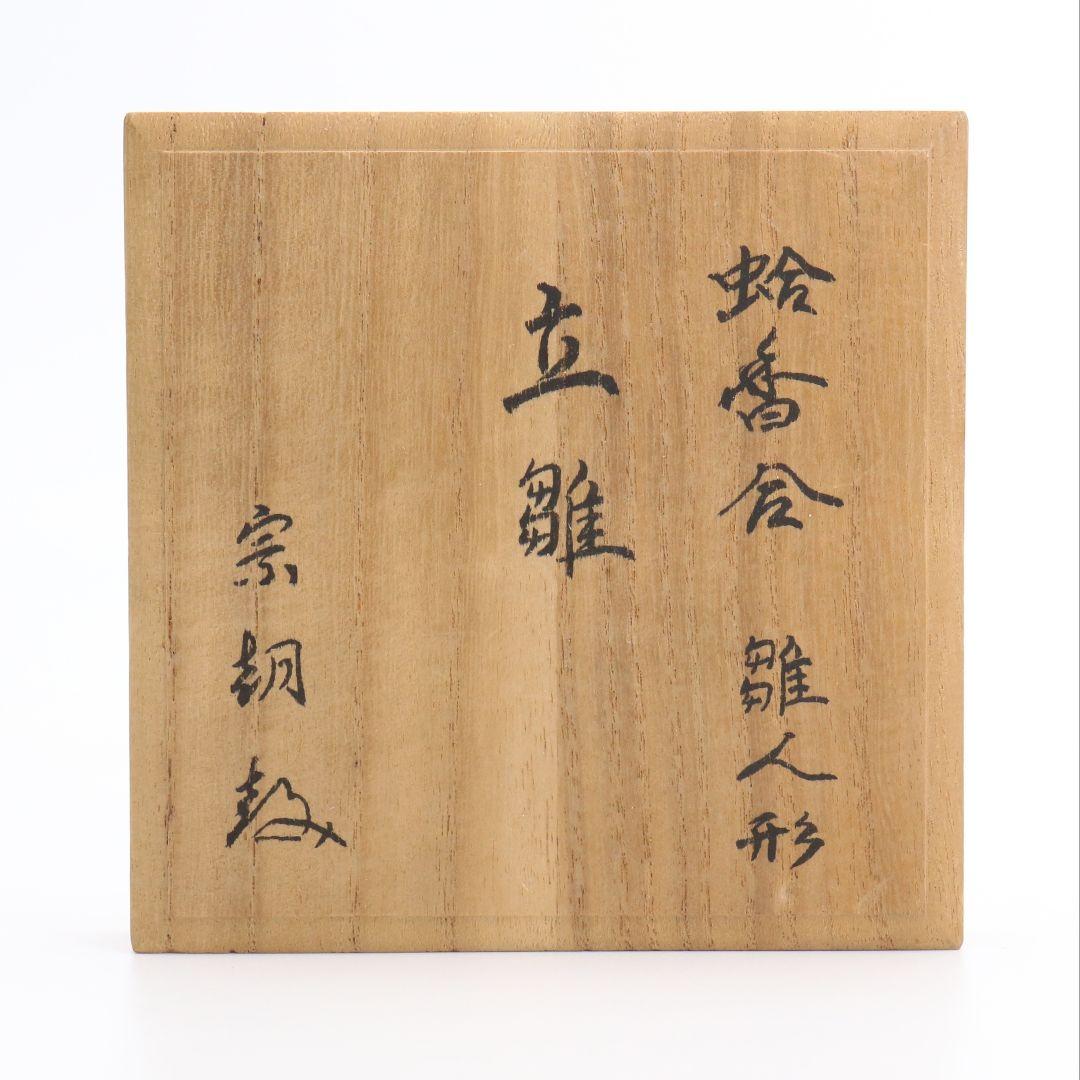 蛤香合 雛人形
立雛
宗朝